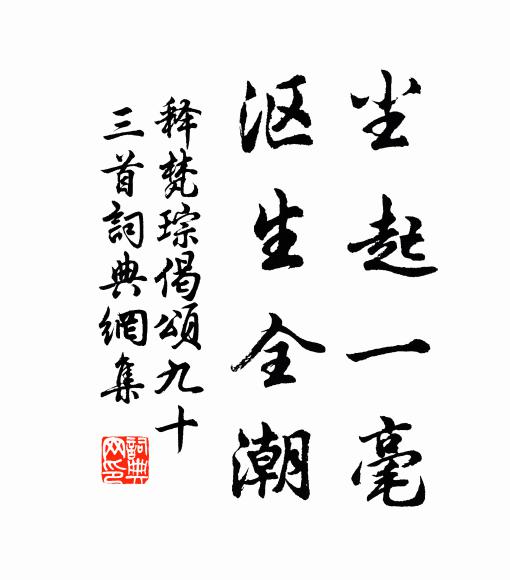 尘起一毫
沤生全潮
释梵琮偈頌九十
三首詞典網集
詞典网印